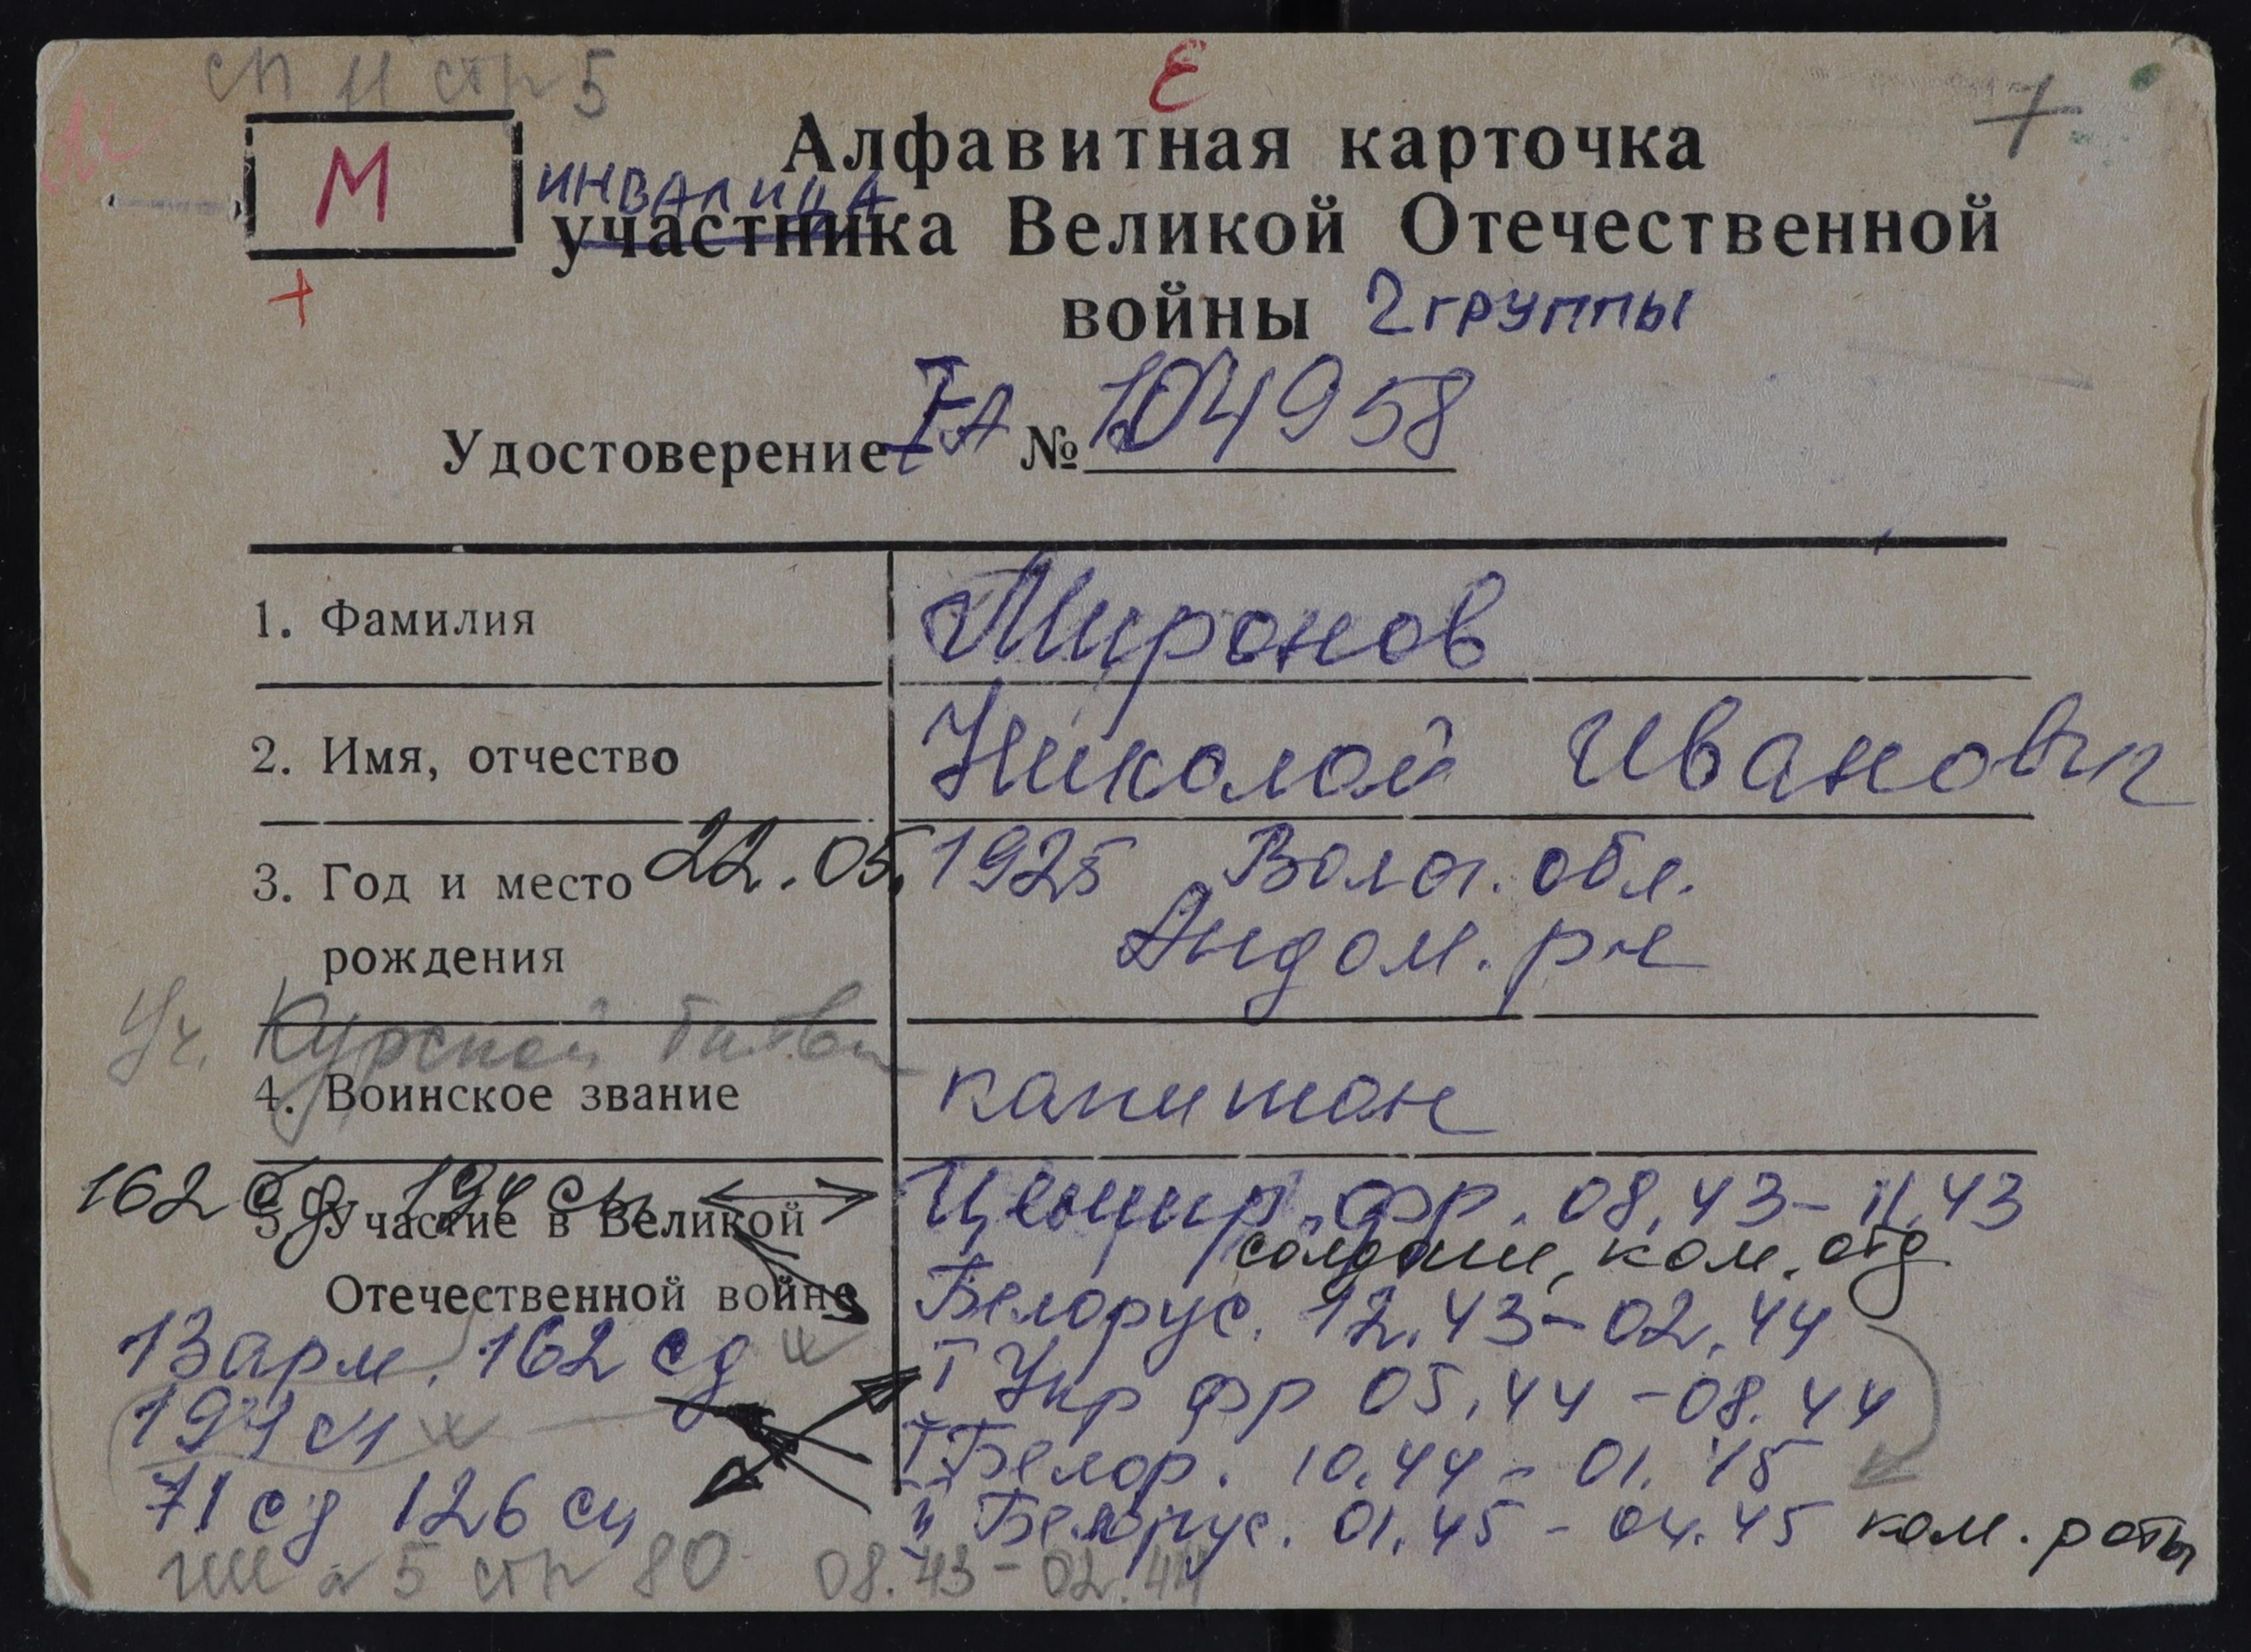 сп 11 стр 5
Е
7
М
Алфавитная карточка
инвалида
участника Великой Отечественной
войны 2 группы
Удостоверение № 104958
1. Фамилия Миронов
2. Имя, отчество Николай Иванович
3. Год и место 22.05.1925 Волог. обл.
рождения Андом. р-н
Уч. Курской битвы
4. Воинское звание капитан
162 сд 194 сп Центр. фр. 08.43-11.43
5. Участие в Великой
солдат, ком. отд
Отечественной войне Белорус. 12.43-02.44
13 арм. 162 сд I Укр фр 05.44-08.44
194 сп I Белор. 10.44-01.45
71 сд 126 сп II Белорус. 01.45-04.45 ком. роты
5 стр 80 08.43-02.44